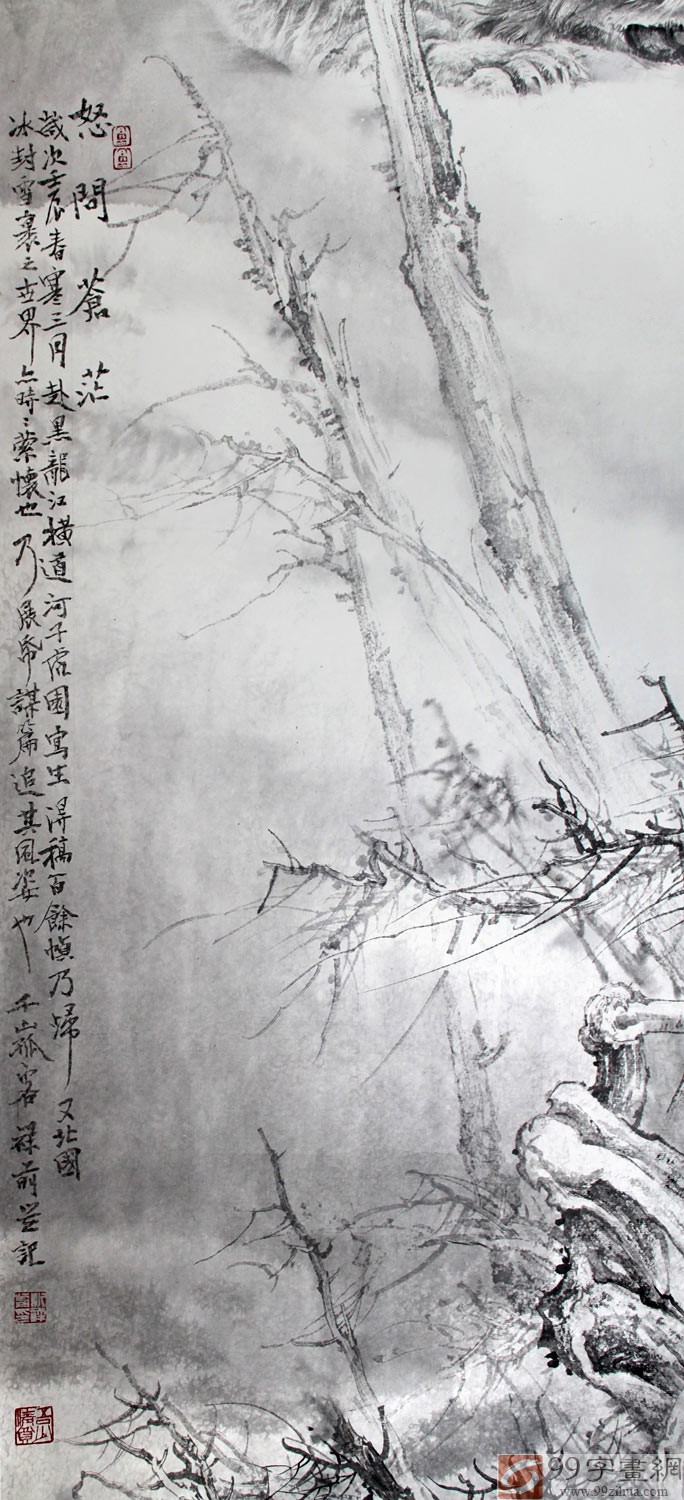 怒問蒼茫
歲次壬辰春寒三月赴黑龍江橫道河子虎園寫生得稿百餘幀乃歸又北國
冰封雪裹之世界亦時時縈懷也乃展紙謀篇追其風姿也千山孤客祿前并記
99字畫網
www.99zihua.com